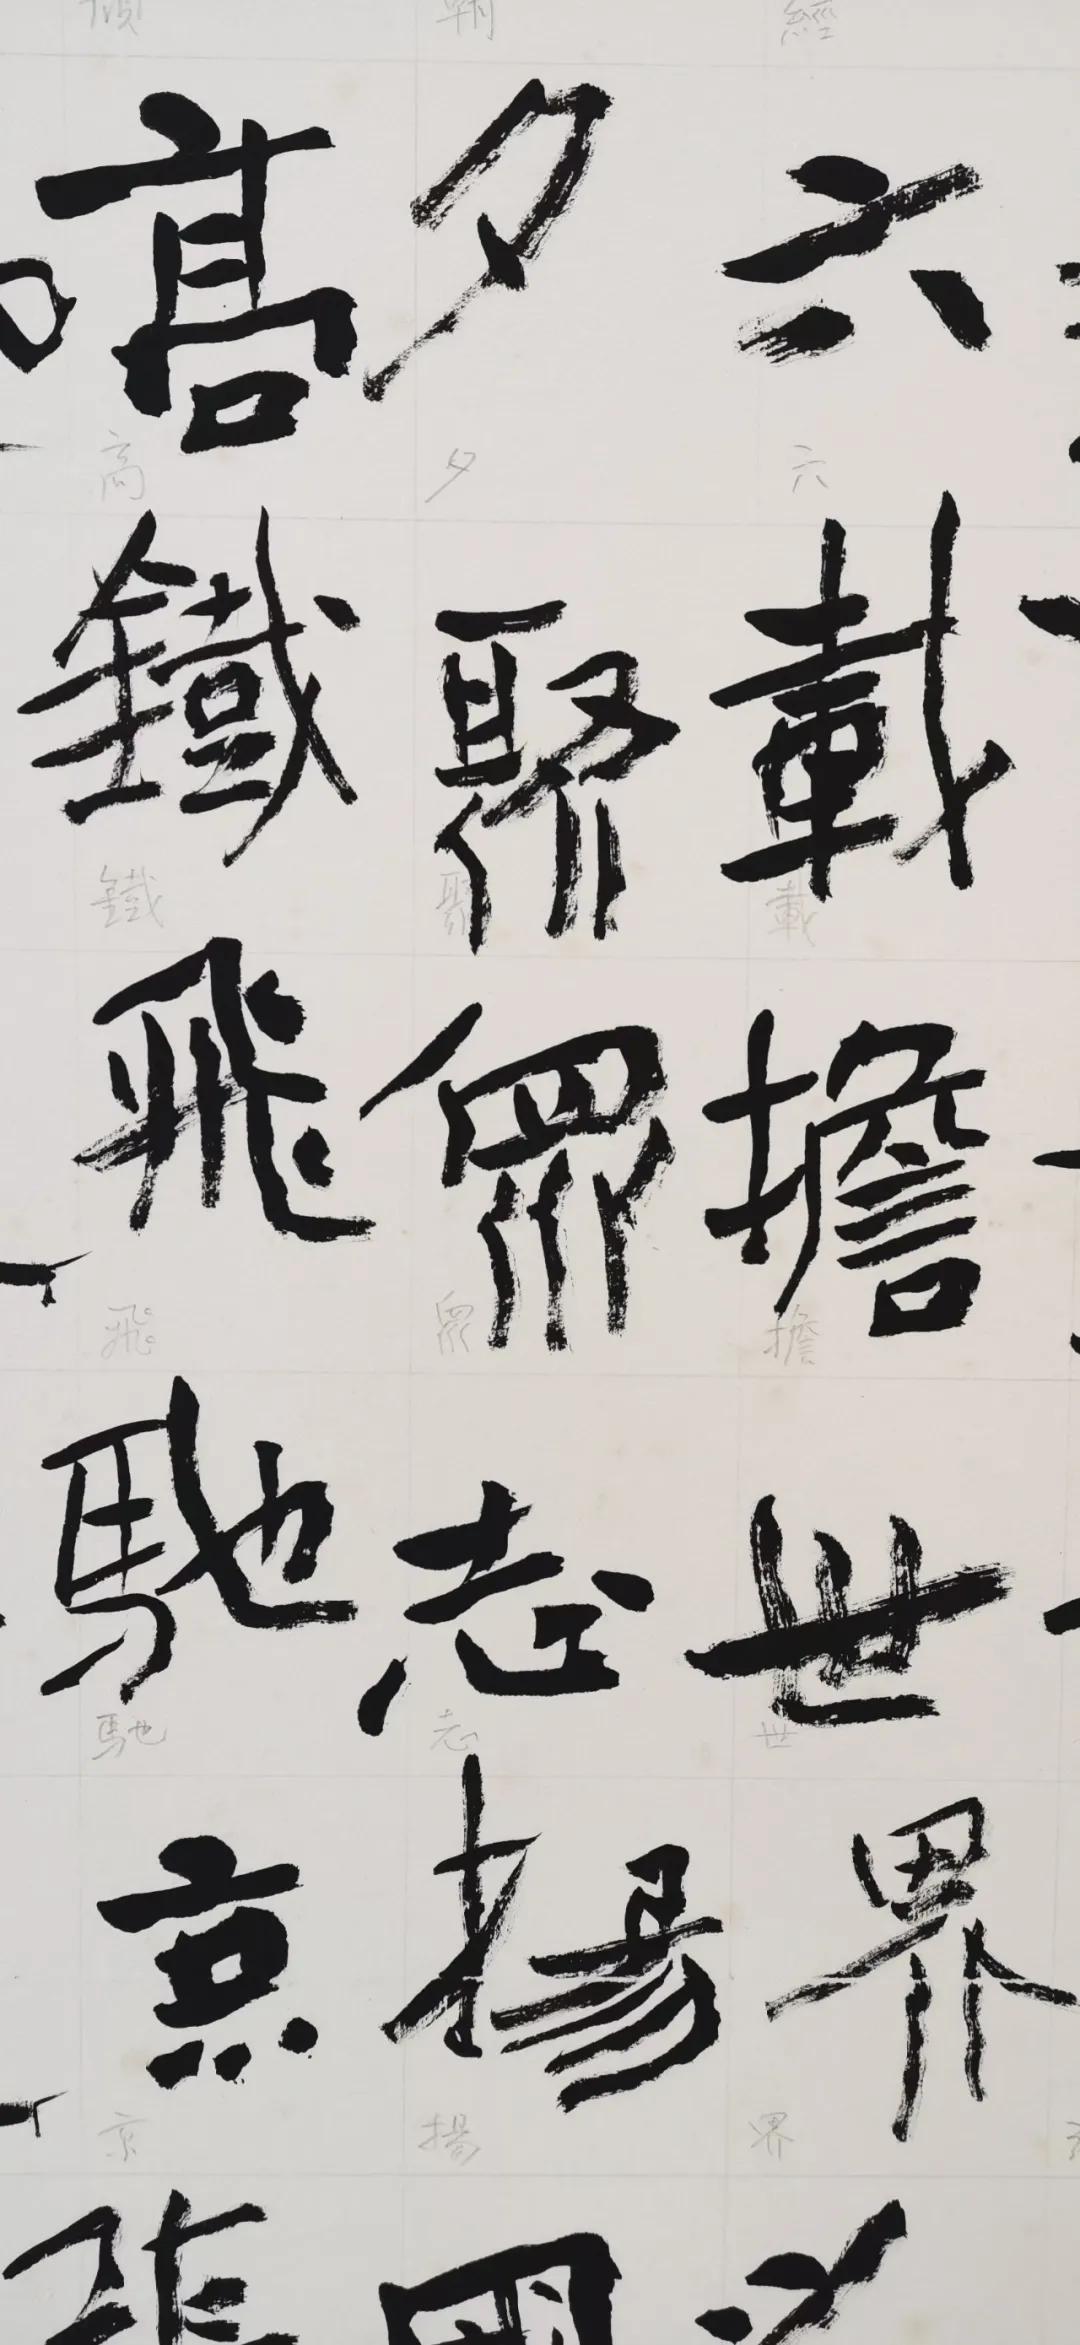 六載擔世界
經六載擔世界
夕聚眾志揚
夕聚眾志揚
高鐵飛馳京
高鐵飛馳京